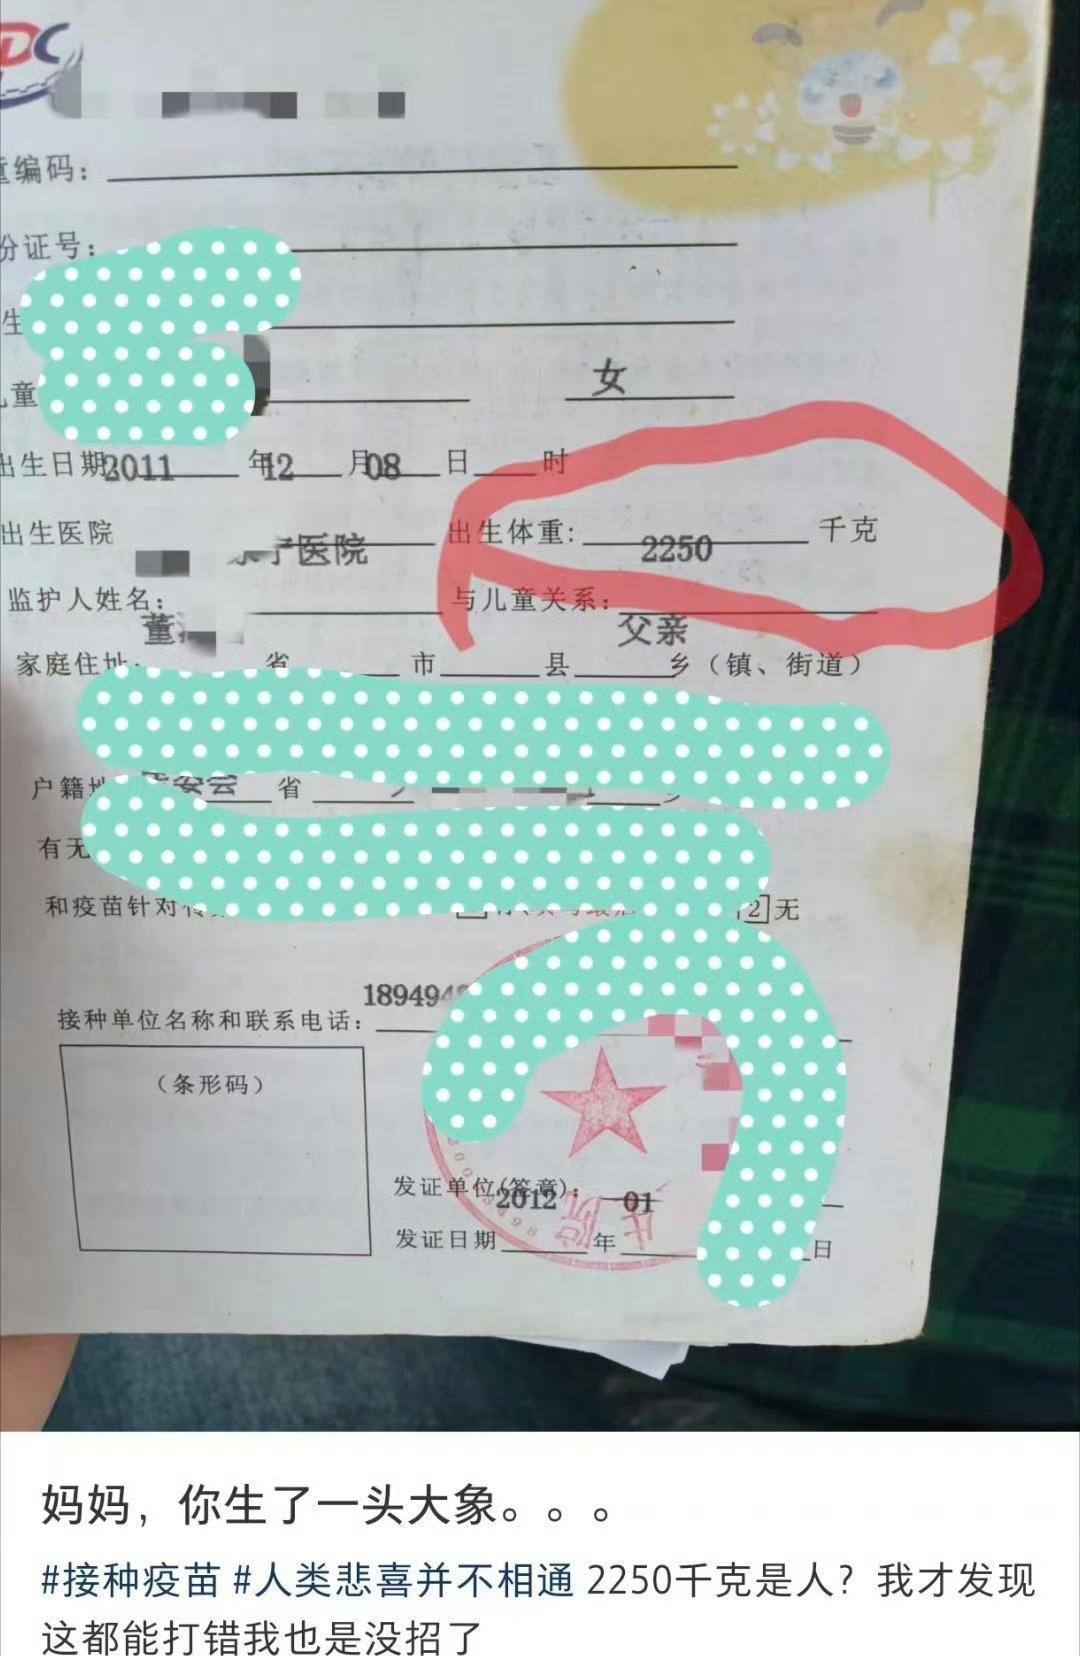 DC
童编码：
份证号：
生
儿童
女
出生日期 2011 年 12 月 08 日 时
出生医院 医院 出生体重： 2250 千克
监护人姓名： 董 与儿童关系： 父亲
家庭住址 省 市 县 乡（镇、街道）
户籍地 省
有无
和疫苗针对 2 无
接种单位名称和联系电话： 189494
（条形码）
发证单位（签章）：
发证日期 2012 年 01 日
妈妈，你生了一头大象。。。
#接种疫苗 #人类悲喜并不相通 2250千克是人？我才发现
这都能打错我也是没招了